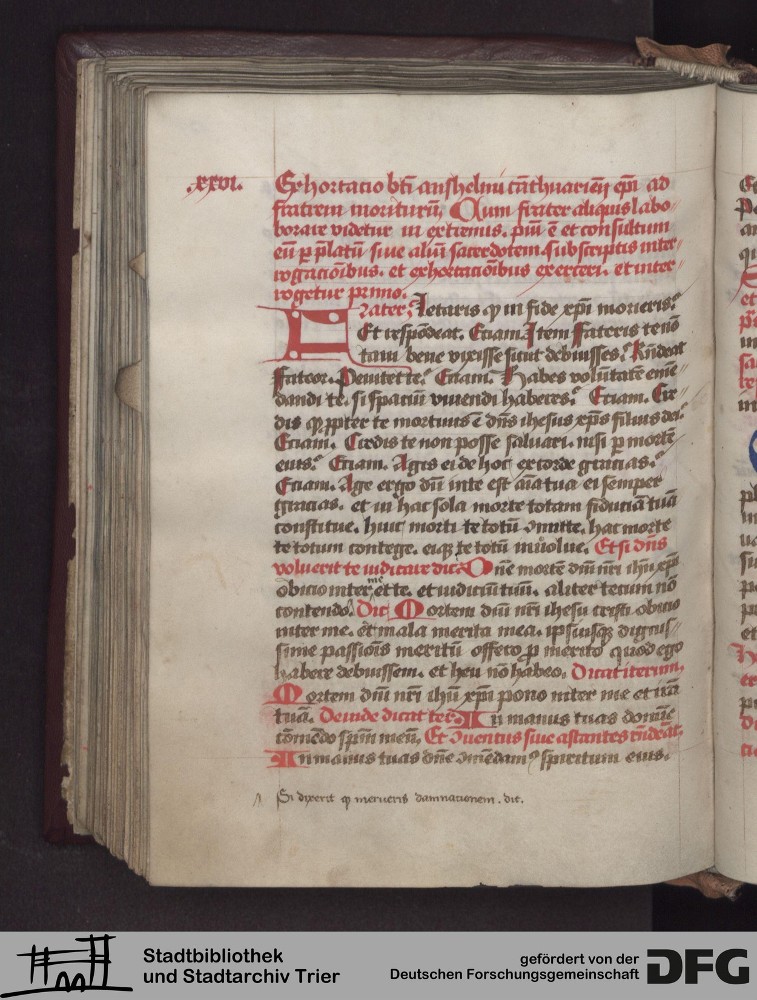 .xxvi. Exhortatio bti anshelmi cathuarien epi ad
fratrem moriturū. Cum frater aliquis labo-
rare videtur in extremis. piū ē et consultum
eū p platū siue aliū sacerdotem subscriptis inter-
rogatōibus. et exhortacōibus exerceri. et inter-
rogetur primo.
Frater letaris q in fide xpi morieris?
Et respōdeat. Etiam. Item Fateris te nō
tam bene vixisse sicut debuisses? Rn̄deat
Fateor. Penitet te? Etiam. Habes volūtatē emē-
dandi te. si spaciū viuendi haberes? Etiam. Cre-
dis q ppter te mortuus ē dn̄s ihesus xp̄s filius dei?
Etiam. Credis te non posse saluari. nisi p mortē
eius? Etiam. Agis ei de hoc ex corde gracias?
Etiam. Age ergo dū in te est aīa tua ei semper
gracias. et in hac sola morte totam fiduciā tuā
constitue. huic morti te totū ɔmitte. hac morte
te totum contege. eiq te totū inuolue. Et si dn̄s
voluerit te iudicare dic. Dn̄e mortē dn̄i nr̄i ihū xpi
obicio inter me et te. et iudiciū tuū. aliter tecum nō
contendo. Dic Mortem dn̄i nr̄i ihesu cristi obicio
inter me. et mala merita mea. ipsiusq dignis-
sime passiōis meritū offero p merito quod ego
habere debuissem. et heu nō habeo. Dicat iterum.
Mortem dn̄i nr̄i ihū xpi pono inter me et irā
tuā. Deinde dicat ter. In manus tuas domie
cōmēdo spm̄ meū. Et ɔuentus siue astantes rn̄deāt.
In manus tuas dn̄e ɔmēdamꝰ spiritum eius.
Λ Si dixerit q merueris damnationem. dic.
Stadtbibliothek
und Stadtarchiv Trier
gefördert von der
Deutschen Forschungsgemeinschaft DFG